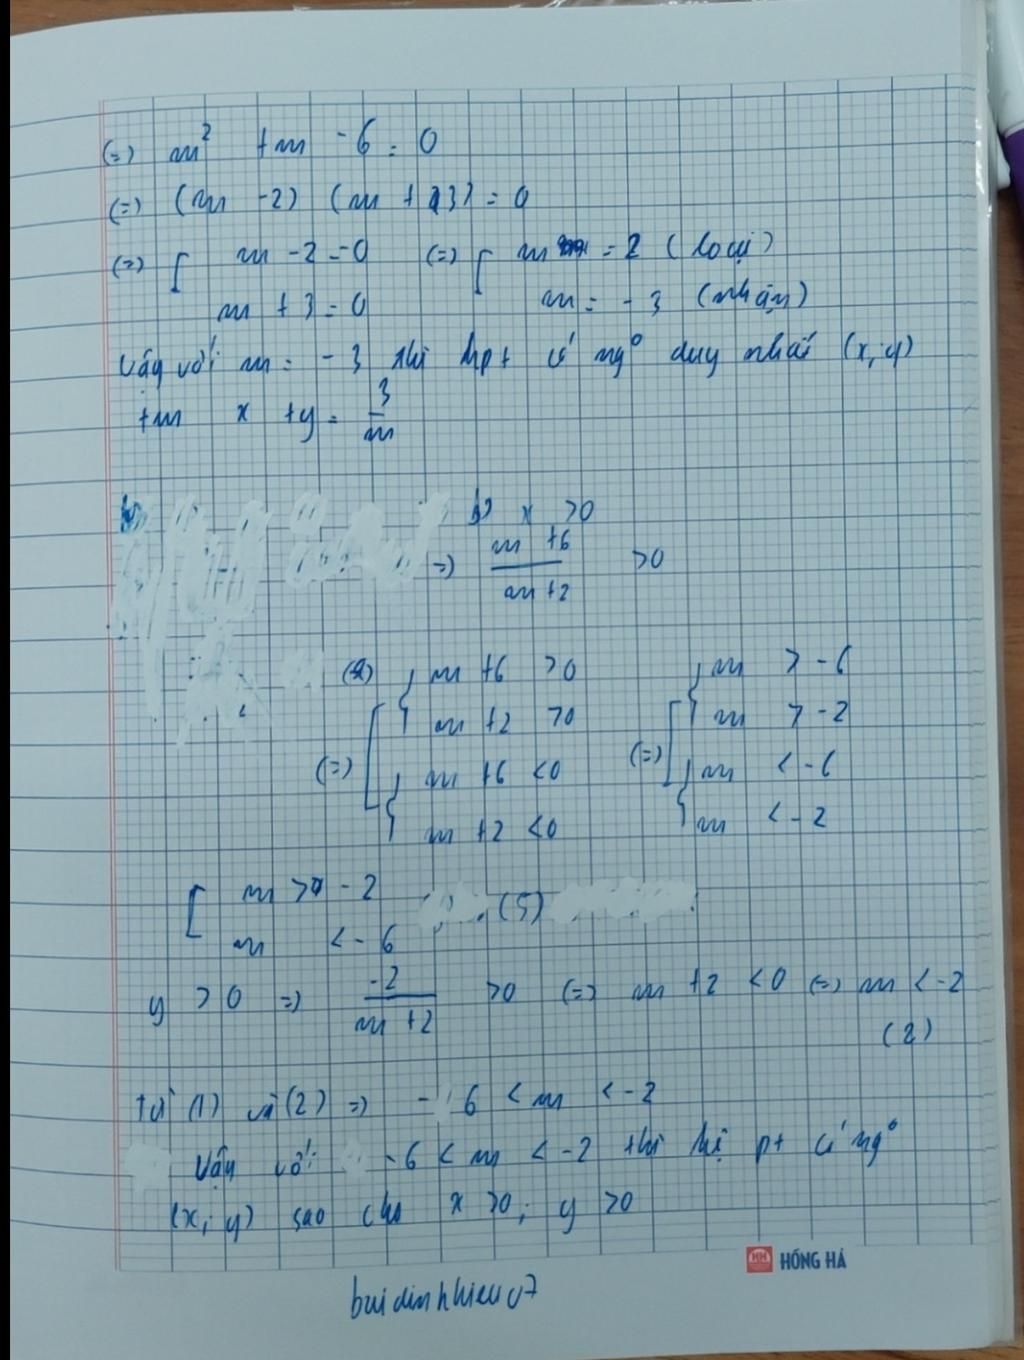 (=) m² + m - 6 = 0
(=) (m - 2) (m + 3) = 0
(=) [ m - 2 = 0 (=) [ m = 2 (loại)
m + 3 = 0 m = - 3 (nhận)
Vậy với m = - 3 thì hpt có ng° duy nhất (x, y)
tm x + y = 3/m
b) x > 0
=) m + 6 / m + 2 > 0
{ m + 6 > 0 { m > - 6
m + 2 > 0 m > - 2
(=) [ { m + 6 < 0 (=) [ { m < - 6
m + 2 < 0 m < - 2
[ m > - 2
m < - 6 (5)
y > 0 =) -2 / m + 2 > 0 (=) m + 2 < 0 (=) m < - 2
(2)
từ (1) và (2) =) - 6 < m < - 2
Vậy với - 6 < m < - 2 thì hệ pt có ng°
(x, y) sao cho x > 0, y > 0
HH HỒNG HÀ
buidinhhieu07